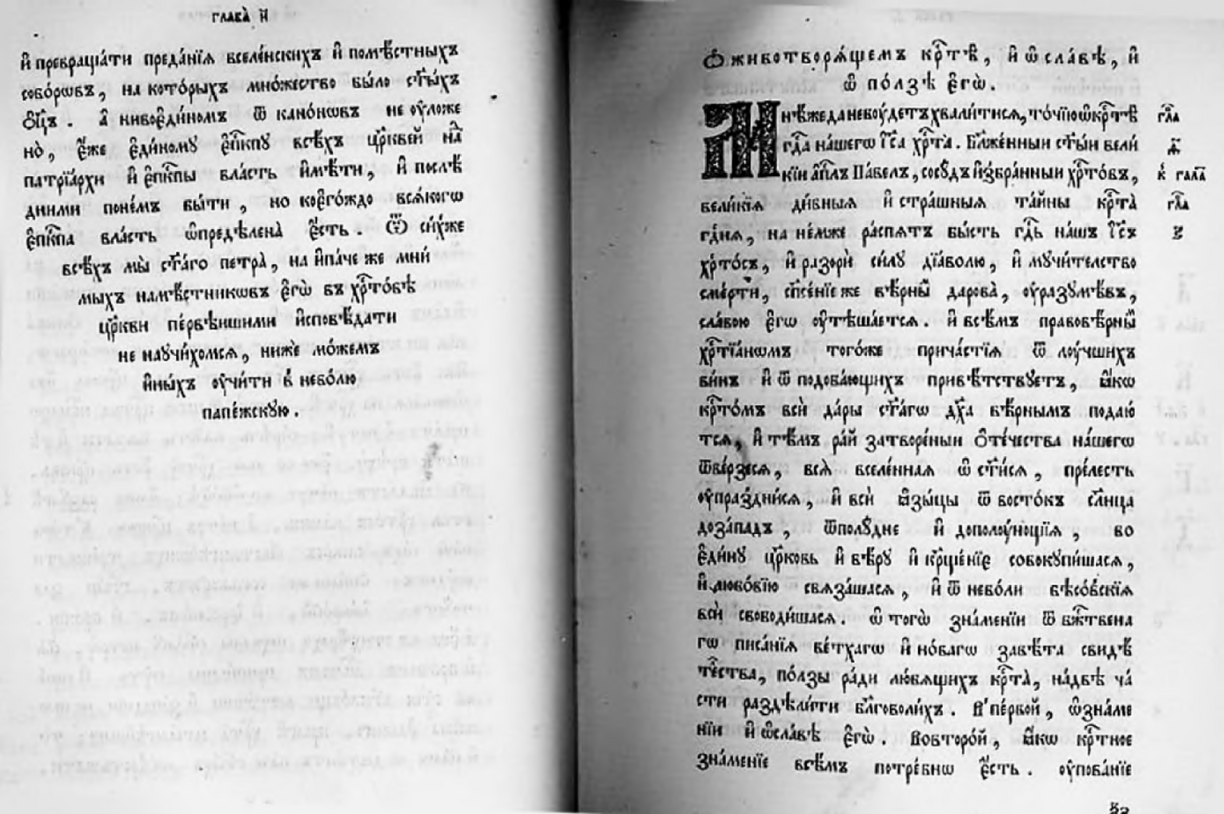 глава̀ и҃
и҆ превраща́ти преда́нїѧ вселе́нскихъ и҆ помѣ́стныхъ
собо́рѡвъ, на кото́рыхъ мно́жество было ст҃ы́хъ
ѻ҆ц҃ъ. а҆ нивоеди́номъ ѿ кано́нѡвъ не ᲂу҆ложе
но̀, є҆́же є҆ди́ному є҆пⷭ҇кпу всѣ́хъ цр҃квей на̀
патрїа́рхи и҆ є҆пⷭ҇кпы вла́сть и҆мѣ́ти, и҆ послѣ́
дними поне́мъ бы́ти, но коегѡ́ждо всѧ́когѡ
є҆пⷭ҇кпа вла́сть ѡ҆предѣ́лена є҆́сть. Ѿ си́хже
всѣ́хъ мы̀ ст҃а́го петра̀, на и҆па́че же мни́
мыхъ намѣ́стникѡвъ є҆гѡ̀ въ хрⷭ҇то́вѣ
цр҃кви пе́рвѣишими и҆сповѣ́дати
не научи́хомсѧ, нижѐ мо́жемъ
и҆ны́хъ ᲂу҆чи́ти в̾ нево́лю
папе́жскую.
Ѻ҆ животворѧ́щемъ крⷭ҇тѣ̀, и҆ ѡ҆ сла́вѣ, и҆
ѡ҆ по́лзѣ є҆гѡ̀.
Мнѣ́жеда небу́детъ хвали́тисѧ, то́чїю ѡ҆ крⷭ҇тѣ̀ гл҃а
гдⷭ҇а на́шегѡ і҆и҃са хрⷭ҇та̀. Бл҃же́нныи ст҃ы́и вели́ ѕ҃
кїи а҆пⷭ҇лъ Па́велъ, сосу́дъ и҆збра́нныи хрⷭ҇то́въ, к̾ гала́
вели́кїѧ ди́вныѧ и҆ стра́шныѧ та́йны крⷭ҇та̀ гл҃а
гдⷭ҇нѧ, на не́мже распѧ́тъ бы́сть гдⷭ҇ь на́шъ і҆и҃съ в҃
хрⷭ҇то́съ, и҆ разорѝ си́лу дїа́волю, и҆ мучи́телство
сме́рти, сп҃се́нїе же вѣ́рны̑ дарова̀, ᲂу҆разумѣ́въ,
сла́вою є҆гѡ̀ ᲂу҆тѣша́етсѧ. и҆ всѣ́мъ правовѣ́рны̑
хрⷭ҇тїа́нѡмъ того́же прича́стїѧ ѿ лу́чшихъ
ви́нъ и҆ ѿ подоба́ющихъ привѣ́тствуетъ, ꙗ҆́кѡ
крⷭ҇то́мъ всѝ да́ры ст҃а́гѡ дх҃а вѣ́рнымъ подаю́
тсѧ, и҆ тѣ́мъ ра́й затворе́ныи ѻ҆те́чества на́шегѡ
ѿве́рзесѧ, всѧ̀ вселе́ннаѧ ѡ҆ ст҃и́сѧ, пре́лесть
ᲂу҆праздни́сѧ, и҆ всѝ ꙗ҆зы́цы ѿ восто́къ сл҃нца
доза́падъ, ѿполу́дне и҆ дополуно́щїѧ, во
є҆ди́ну цр҃ковь и҆ вѣ́ру и҆ крⷭ҇ще́нїе совокупи́шасѧ,
и҆ любо́вїю свѧза́шасѧ, и҆ ѿ нево́ли бѣсо́вскїѧ
всѝ свободи́шасѧ. ѡ҆ тогѡ̀ зна́менїи ѿ бжⷭ҇твена
гѡ писа́нїѧ ве́тхагѡ и҆ но́вагѡ завѣ́та свидѣ́
те́ства, по́лзы ра́ди лю́бѧщихъ крⷭ҇та̀, на́двѣ ча́
сти раздѣли́ти бл҃говоли́хъ. В̾ пе́рвой, ѡ҆ зна́ме
нїи и҆ ѡ҆сла́вѣ є҆гѡ̀. Во второ́й, ꙗ҆́кѡ крⷭ҇тное
зна́менїе всѣ́мъ потре́бнѡ є҆́сть. ᲂу҆пова́нїе